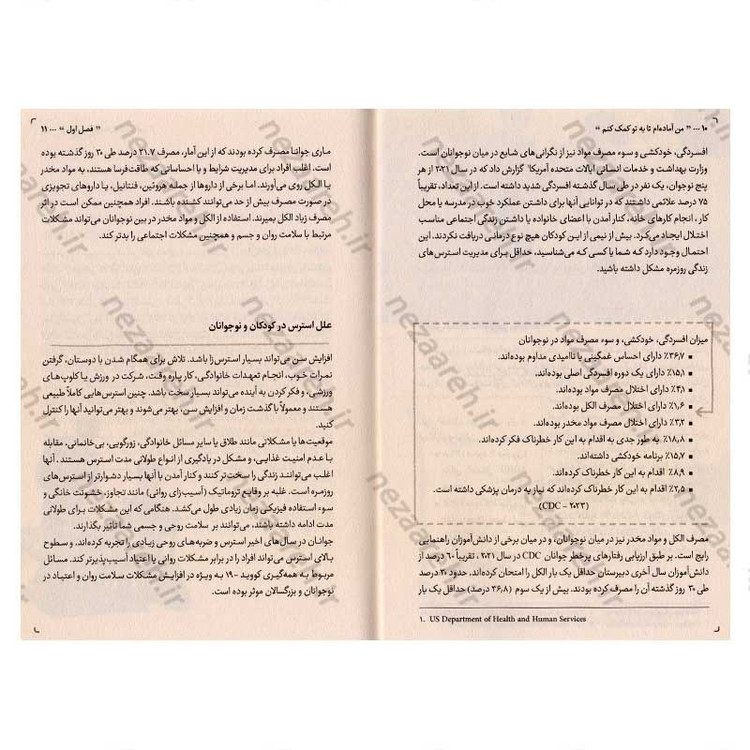 ۱۰ ... ” من آماده‌ام تا به تو کمک کنم “
افسردگی، خودکشی و سوء مصرف مواد نیز از نگرانی‌های شایع در میان نوجوانان است.
وزارت بهداشت و خدمات انسانی ایالات متحده آمریکا¹ گزارش داد که در سال ۲۰۲۱ از هر
پنج نوجوان، یک نفر در طی سال گذشته افسردگی شدید داشته است. از این تعداد، تقریباً
۷۵ درصد علائمی داشتند که در توانایی آنها برای داشتن عملکرد خوب در مدرسه یا محل
کار، انجام کارهای خانه، کنار آمدن با اعضای خانواده یا داشتن زندگی اجتماعی مناسب
اختلال ایجاد می‌کرد. بیش از نیمی از این کودکان هیچ نوع درمانی دریافت نکردند. این
احتمال وجود دارد که شما یا کسی که می‌شناسید، حداقل برای مدیریت استرس‌های
زندگی روزمره مشکل داشته باشید.
میزان افسردگی، خودکشی، و سوء مصرف مواد در نوجوانان
۳۶,۷٪ دارای احساس غمگینی یا ناامیدی مداوم بوده‌اند.
۱۵,۱٪ دارای یک دوره افسردگی اصلی بوده‌اند.
۴,۱٪ دارای اختلال مصرف مواد بوده‌اند.
۱,۶٪ دارای اختلال مصرف الکل بوده‌اند.
۳,۲٪ دارای اختلال مصرف مواد مخدر بوده‌اند.
۱۸,۸٪ به طور جدی به اقدام به این کار خطرناک فکر کرده‌اند.
۱۵,۷٪ برنامه خودکشی داشته‌اند.
۸,۹٪ اقدام به این کار خطرناک کرده‌اند.
۲,۵٪ اقدام به این کار خطرناک کرده‌اند که نیاز به درمان پزشکی داشته است.
(CDC – ۲۰۲۳)
مصرف الکل و مواد مخدر نیز در میان نوجوانان، و در میان برخی از دانش‌آموزان راهنمایی
رایج است. بر طبق ارزیابی رفتارهای پرخطر جوانان CDC در سال ۲۰۲۱، تقریباً ۶۰ درصد از
دانش‌آموزان سال آخری دبیرستان حداقل یک بار الکل را امتحان کرده‌اند. حدود ۳۰ درصد
طی ۳۰ روز گذشته آن را مصرف کرده بودند. بیش از یک سوم (۳۶,۸ درصد) حداقل یک بار
۱. US Department of Health and Human Services
” فصل اول “ ... ۱۱
ماری جوانا مصرف کرده بودند که از این آمار، مصرف ۲۱,۷ درصد طی ۳۰ روز گذشته بوده
است. اغلب افراد برای مدیریت شرایط و یا احساساتی که طاقت‌فرسا هستند، به مواد مخدر
یا الکل روی می‌آورند. اما برخی از داروها از جمله هروئین، فنتانیل، یا داروهای تجویزی
در صورت مصرف بیش از حد می‌توانند کشنده باشند. افراد همچنین ممکن است در اثر
مصرف زیاد الکل بمیرند. استفاده از الکل و مواد مخدر در بین نوجوانان می‌تواند مشکلات
مرتبط با سلامت روان و جسم و همچنین مشکلات اجتماعی را بدتر کند.
علل استرس در کودکان و نوجوانان
افزایش سن می‌تواند بسیار استرس‌زا باشد. تلاش برای همگام شدن با دوستان، گرفتن
نمرات خوب، انجام تعهدات خانوادگی، کار پاره وقت، شرکت در ورزش یا کلوپ‌های
ورزشی، و فکر کردن به آینده می‌تواند بسیار سخت باشد. چنین استرس‌هایی کاملاً طبیعی
هستند و معمولاً با گذشت زمان و افزایش سن، بهتر می‌شوند و بهتر می‌توانید آنها را کنترل
کنید.
موقعیت‌ها یا مشکلاتی مانند طلاق یا سایر مسائل خانوادگی، زورگویی، بی‌خانمانی، مقابله
با عدم امنیت غذایی، و مشکل در یادگیری از انواع طولانی مدت استرس هستند. آنها
اغلب می‌توانند زندگی را سخت‌تر کنند و کنار آمدن با آنها بسیار دشوارتر از استرس‌های
روزمره است. غلبه بر وقایع تروماتیک (آسیب‌زای روانی) مانند تجاوز، خشونت خانگی و
سوء استفاده فیزیکی زمان زیادی طول می‌کشد. هنگامی که این مشکلات برای طولانی
مدت ادامه داشته باشند، می‌توانند بر سلامت روحی و جسمی شما تأثیر بگذارند.
جوانان در سال‌های اخیر استرس و ضربه‌های روحی زیادی را تجربه کرده‌اند، و سطوح
بالای استرس می‌تواند افراد را در برابر مشکلات روانی یا اعتیاد آسیب‌پذیرتر کند. مسائل
مربوط به همه‌گیری کووید -۱۹ به ویژه در افزایش مشکلات سلامت روان و اعتیاد در
نوجوانان و بزرگسالان موثر بوده است.
nezaareh.ir